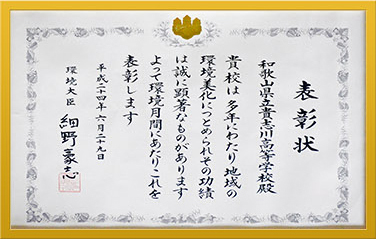 表彰状
和歌山県立貴志川高等学校殿
貴校は多年にわたり地域の
環境美化につとめられその功績
は誠に顕著なものがあります
よって環境月間にあたりこれを
表彰します
平成二十四年六月二十九日
環境大臣 細野豪志